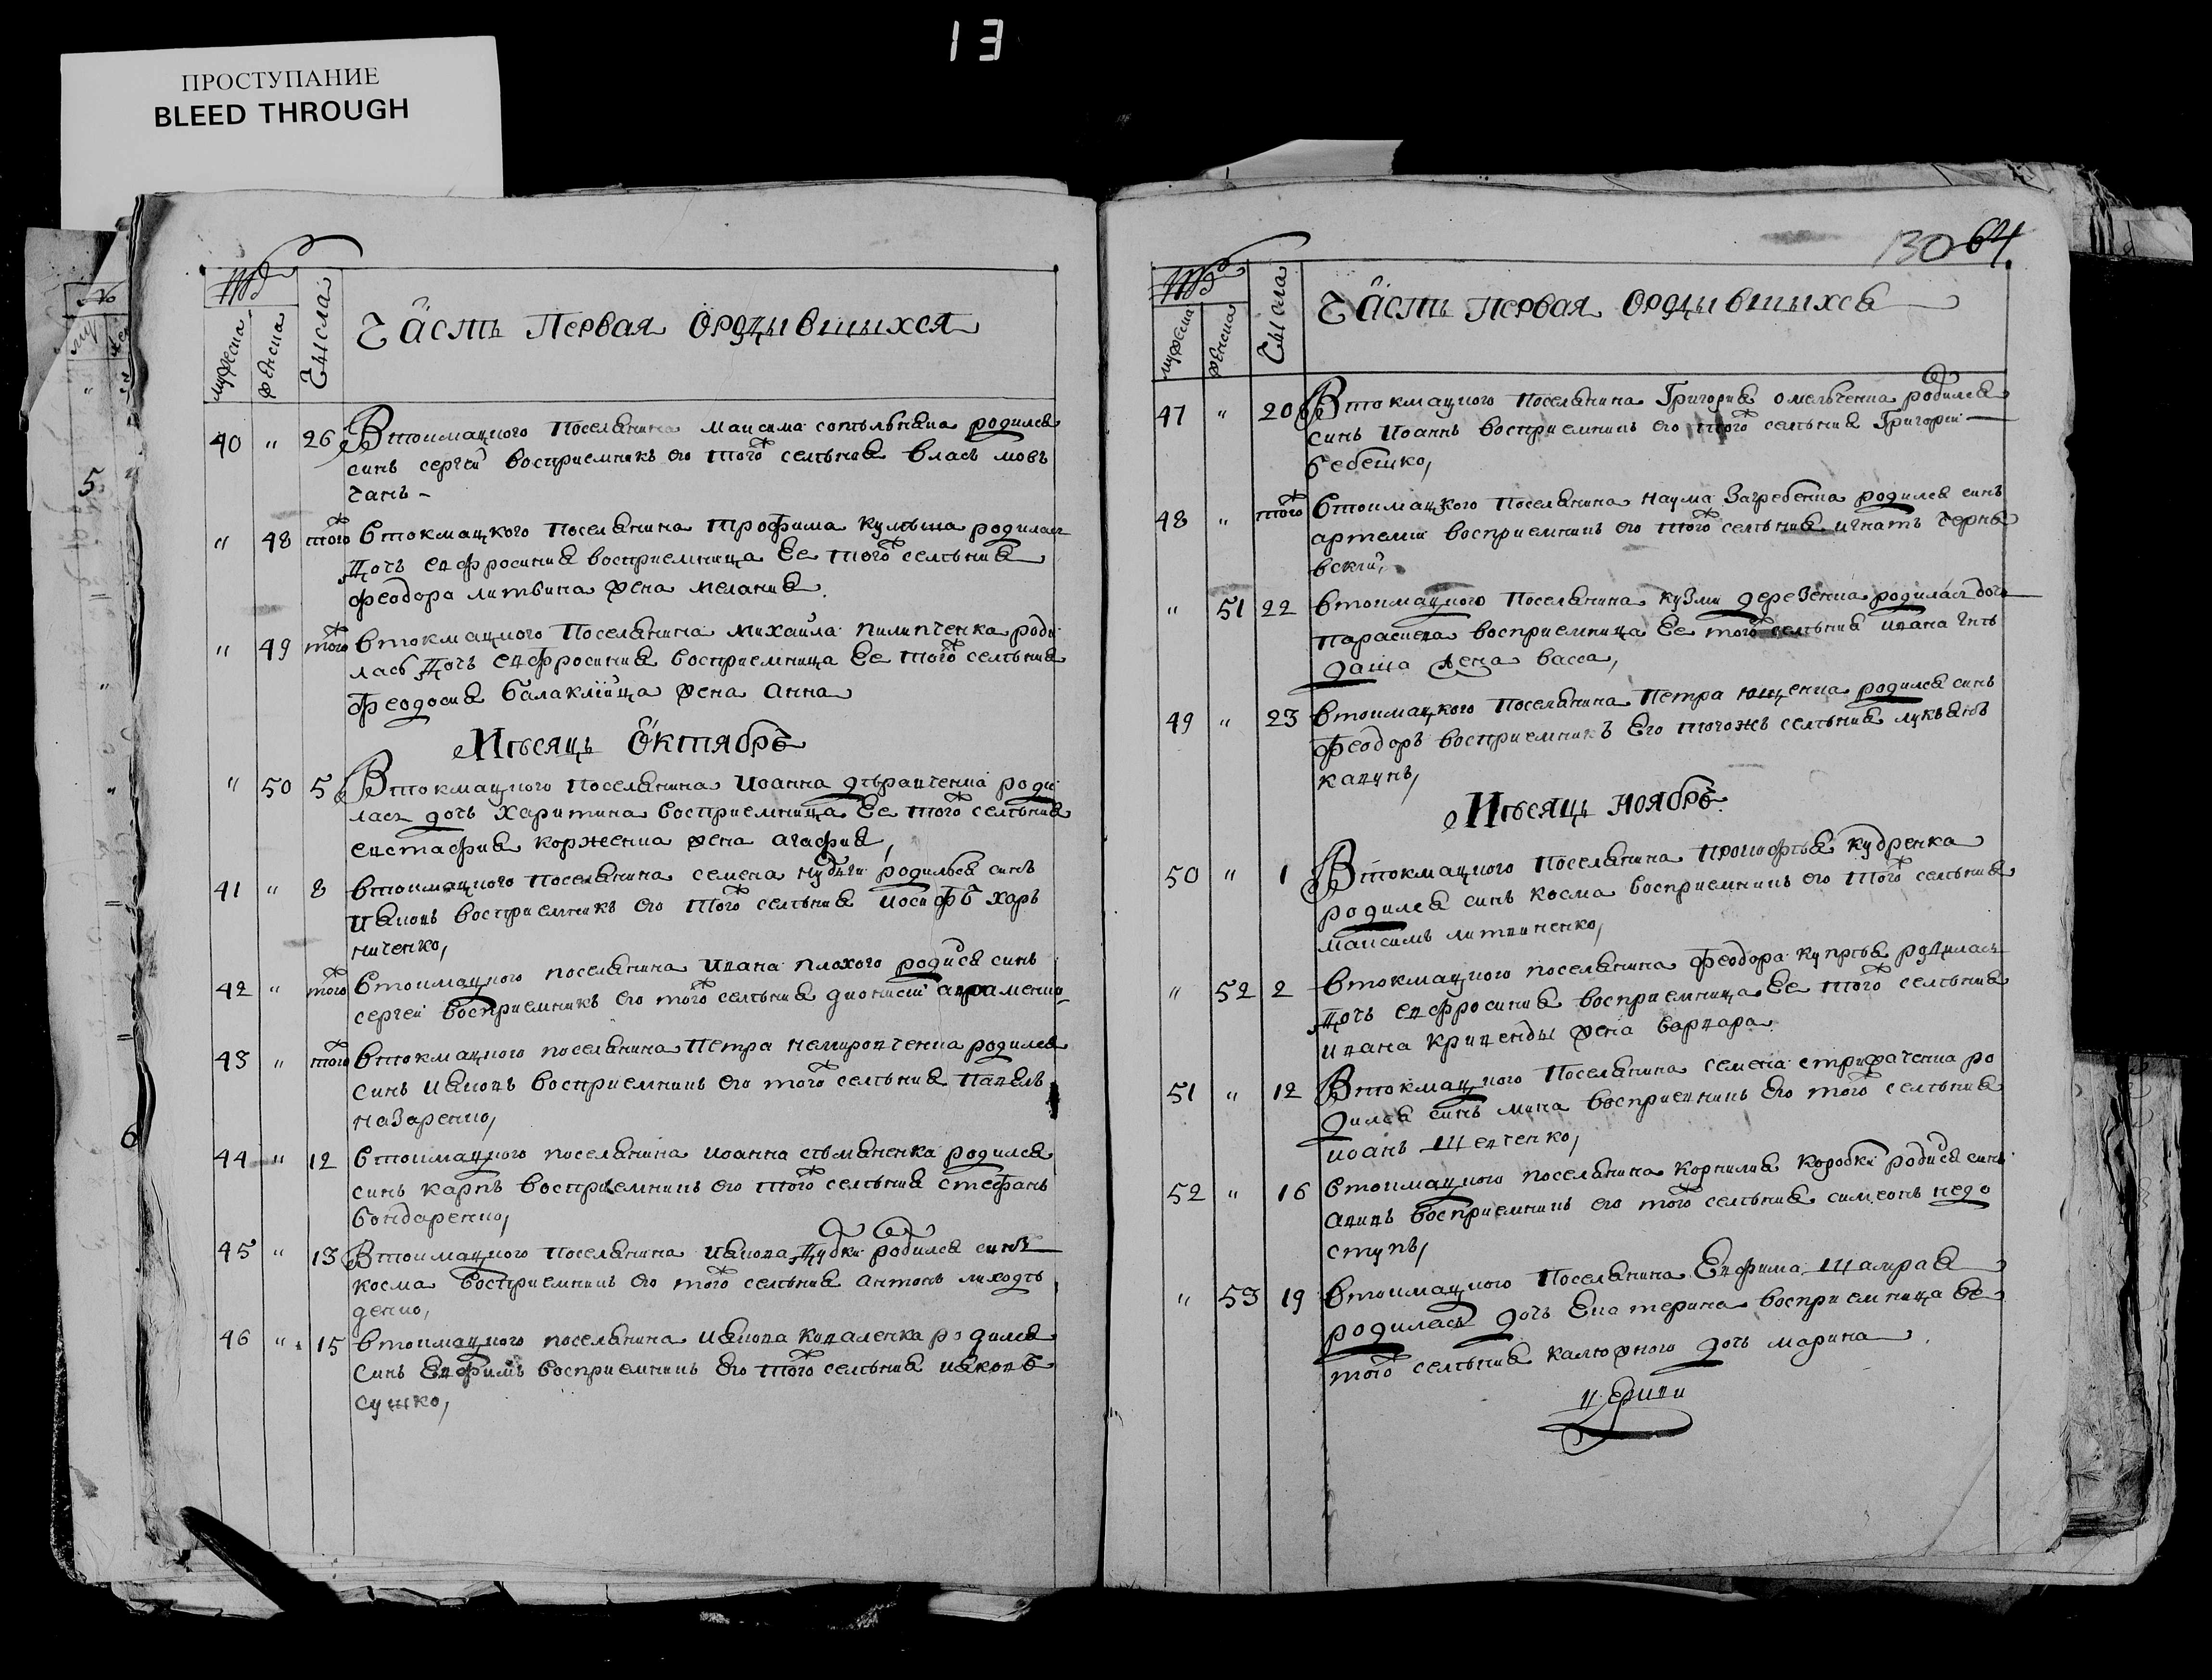 13
ПРОСТУПАНИЕ
BLEED THROUGH
мужеска
женска
Числа
Часть Первая Ородившихся
40 " 26 Втокмацкого Поселянина максима родился
синъ сергей восприемникъ его того селения власъ мов
чанъ -
" 48 того втокмацкого Поселянина трофима родилась
Дочь евфросиния восприемница Ее того селения
феодора литвина жена мелания.
" 49 того втокмацкого Поселянина михаила пилипченка роди
лась Дочь евфросиния восприемница Ее того селения
феодосия балаклийца жена анна
Месяцъ Октябръ
" 50 5 Втокмацкого Поселянина Иоанна родй
лась дочь харитина восприемница Ее того селения
евстафия корженка жена агафия,
41 " 8 втокмацкого Поселянина семена родился синъ
Иаковъ восприемникъ его того селения иосифъ хар
ниченко,
42 " того втокмацкого поселянина Ивана плохого родися синъ
сергей восприемникъ его того селения дионисий авраменко
43 " того втокмацкого поселянина Петра родился
синъ Иаковъ восприемникъ его того селения Павелъ
назаренко,
44 " 12 втокмацкого поселянина иоанна родился
синъ карпъ восприемникъ его того селения стефанъ
бондаренко,
45 " 13 Втокмацкого Поселянина Иакова Дубки родился синъ
косма восприемникъ его того селения антонъ лиходѣ
денко,
46 " 15 втокмацкого поселянина Иакова коваленка родился
синъ Евфимъ восприемникъ Его того селения Иаковъ
сушко,
130 64.
мужеска
женска
Числа
Часть Первая Ородившихся
47 " 20 Втокмацкого Поселянина Григория омельченка родился
синъ Иоаннъ восприемникъ его того селения Григорий
бебешко,
48 " того втокмацкого Поселянина наума Загребенка родился синъ
артемий восприемникъ его того селения игнатъ черня
вский,
" 51 22 втокмацкого Поселянина кузми дерезенка родилась дочь
параскева восприемница Ее того селения ивана
жена васса,
49 " 23 втокмацкого Поселянина Петра ющенка родился синъ
феодоръ восприемникъ Его тогожъ селения лукьянъ
кавунъ,
Месяцъ ноябръ
50 " 1 Втокмацкого Поселянина прокофья кудренка
родился синъ косма восприемникъ его того селения
максимъ литвиненко,
" 52 2 втокмацкого поселянина феодора купрѣя родилась
Дочь евфросиния восприемница Ее того селения
ивана кривенды жена варвара.
51 " 12 Втокмацкого Поселянина семена стрижаченка ро
дился синъ мина восприемникъ Его того селения
иоанъ шевченко,
52 " 16 втокмацкого поселянина корнилия коробки родися синъ
восприемникъ его того селения симеонъ недо
ступъ,
" 53 19 втокмацкого Поселянина Евфима шамрая
родилась дочь Екатерина восприемница Ее
того селения калюжного дочь марина.